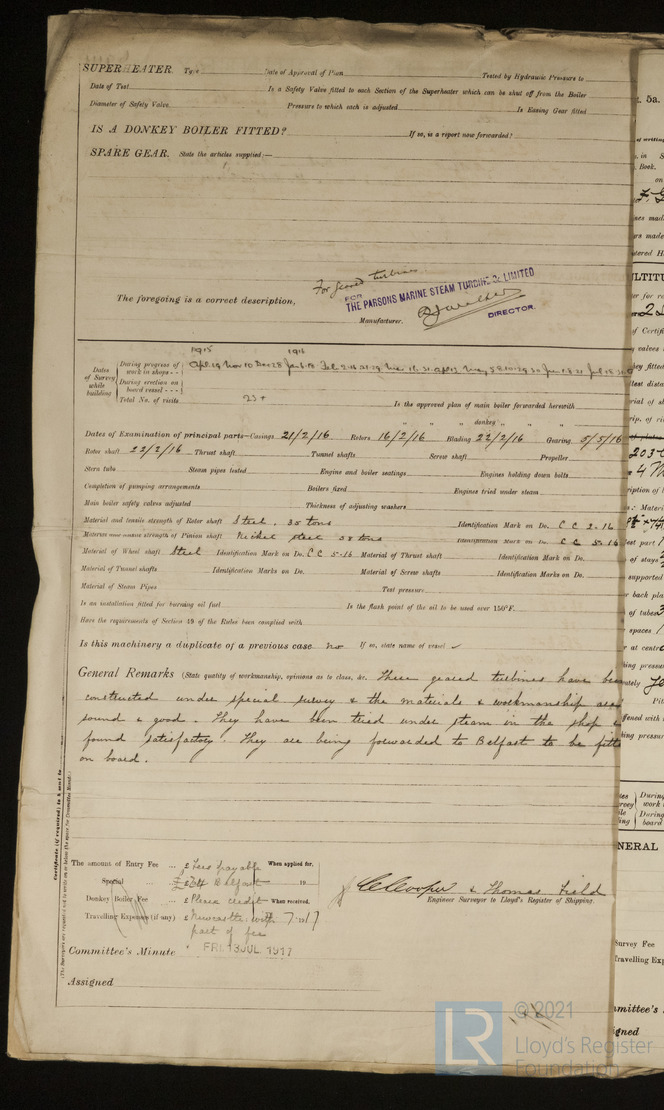 SUPERHEATER. Type Date of Approval of Plan Tested by Hydraulic Pressure to
Date of Test Is a Safety Valve fitted to each Section of the Superheater which can be shut off from the Boiler
Diameter of Safety Valve Pressure to which each is adjusted Is Easing Gear fitted
IS A DONKEY BOILER FITTED? If so, is a report now forwarded?
SPARE GEAR. State the articles supplied:—
For geared turbines
The foregoing is a correct description,
FOR THE PARSONS MARINE STEAM TURBINE Co LIMITED
DIRECTOR.
Manufacturer.
1915 1916
Dates of Survey while building
During progress of work in shops - -
During erection on board vessel - - -
Total No. of visits 23 +
Is the approved plan of main boiler forwarded herewith
" " " donkey " " "
Dates of Examination of principal parts—Casings 21/2/16 Rotors 16/2/16 Blading 22/2/16 Gearing 5/5/16
Rotor shaft 22/2/16 Thrust shaft Tunnel shafts Screw shaft Propeller
Stern tube Steam pipes tested Engine and boiler seatings Engines holding down bolts
Completion of pumping arrangements Boilers fixed Engines tried under steam
Main boiler safety valves adjusted Thickness of adjusting washers
Material and tensile strength of Rotor shaft Steel. 35 tons Identification Mark on Do. C C 2-16
Material and tensile strength of Pinion shaft Nickel steel 38 tons Identification Mark on Do. C C 5-16
Material of Wheel shaft Steel Identification Mark on Do. C C 5-16 Material of Thrust shaft Identification Mark on Do.
Material of Tunnel shafts Identification Marks on Do. Material of Screw shafts Identification Marks on Do.
Material of Steam Pipes Test pressure
Is an installation fitted for burning oil fuel Is the flash point of the oil to be used over 150°F.
Have the requirements of Section 49 of the Rules been complied with
Is this machinery a duplicate of a previous case no If so, state name of vessel
General Remarks (State quality of workmanship, opinions as to class, &c. These geared turbines have been
constructed under special survey & the materials & workmanship are
sound & good. They have been tried under steam in the shop &
found satisfactory. They are being forwarded to Belfast to be fitted
on board.
Certificate (if required) to be sent to
(The Surveyors are requested not to write on or below the space for Committee's Minute.)
The amount of Entry Fee ... £ Fees payable When applied for,
Special ... £ Belfast 19
Donkey Boiler Fee ... £ Please credit When received.
Travelling Expenses (if any) £ Newcastle with
part of fee
C Cooper & Thomas Field
Engineer Surveyor to Lloyd's Register of Shipping.
Committee's Minute FRI. 13 JUL. 1917
Assigned
© 2021
LR Lloyd's Register
Foundation